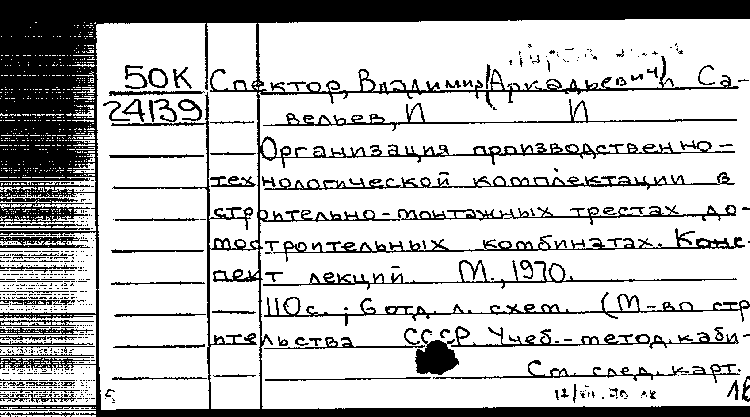 50К Спектор, Владимир (Аркадьевич) и Са-
24139 вельев, П П
Организация производственно-
технологической комплектации в
строительно-монтажных трестах до-
мостроительных комбинатах. Конс-
пект лекций. М., 1970.
110 с.; 6 отд. л. схем. (М-во стр
ительства СССР. Учеб.-метод. каби-
См. след. карт.